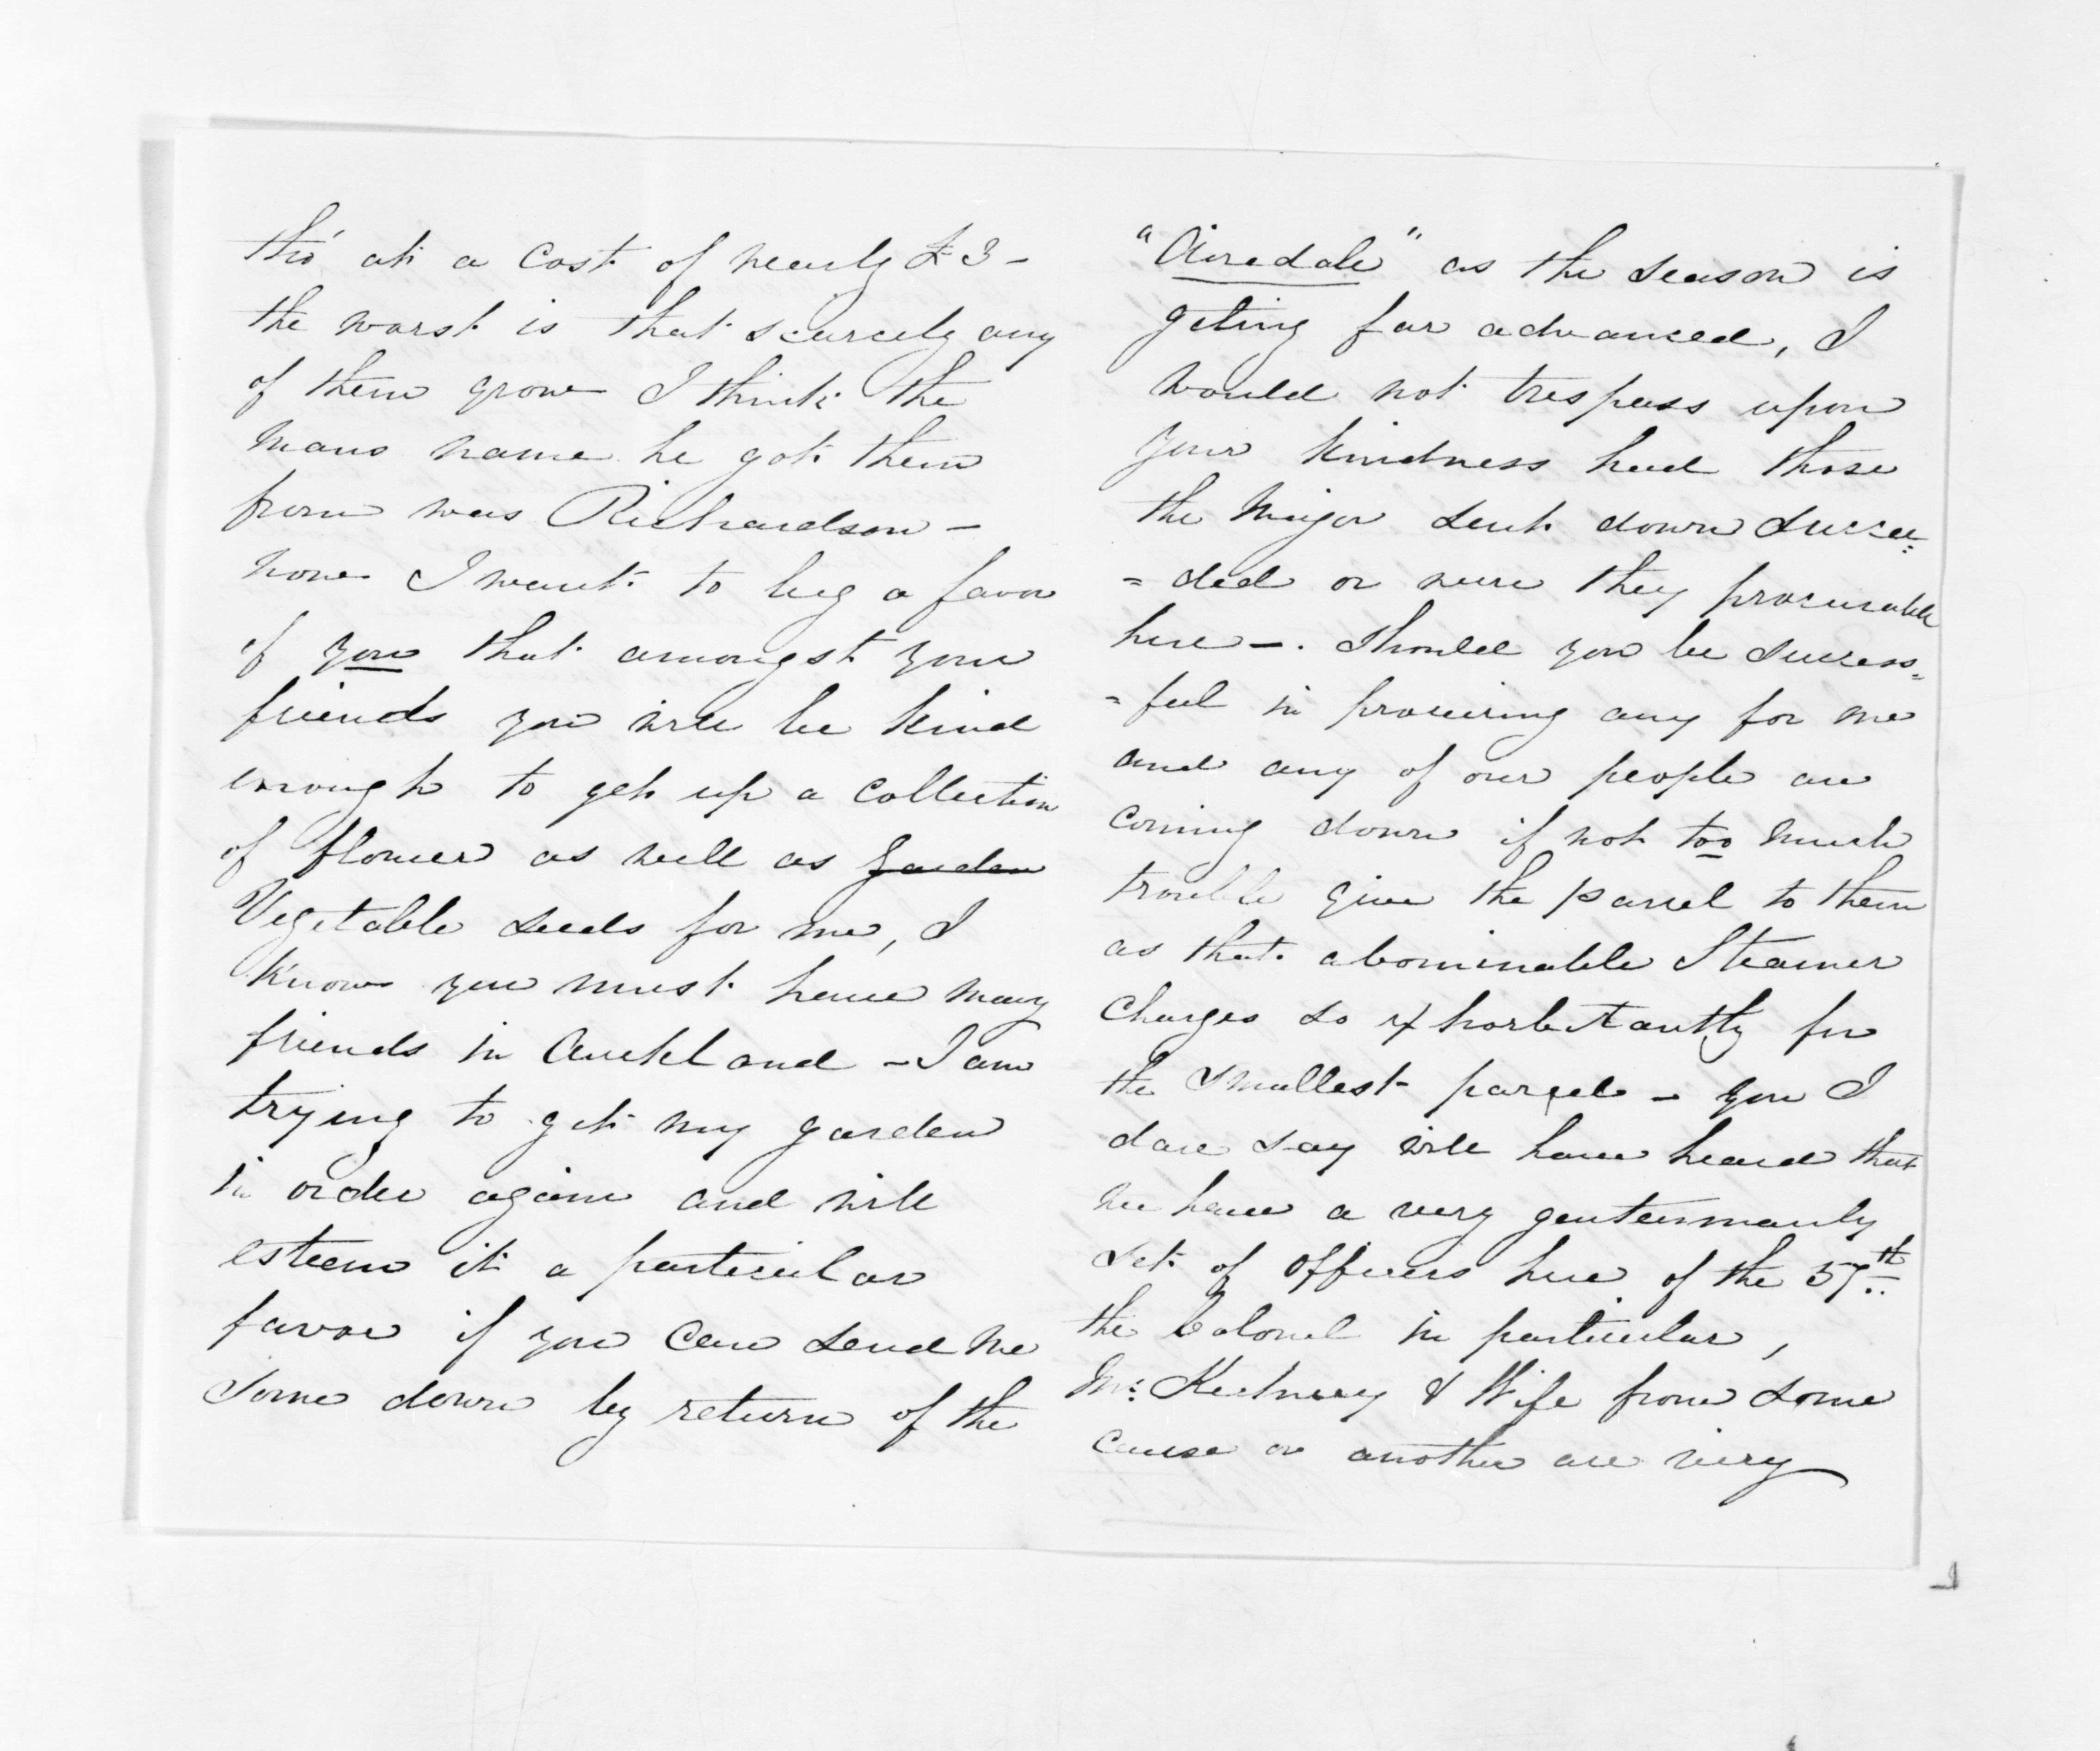 tho' at a cost of nearly £3 -
the worst is that scarcely any
of them grow I think the
mans name he got them
from was Richardson -
now I want to beg a favor
of you that amongst your
friends you will be kind
enough to get up a collection
of flower as well as garden
Vegetable seeds for me, I
know you must have many
friends in Auckland - I am
trying to get my garden
in order again and will
esteem it a particular
favor if you can send me
some down by return of the
"Airedale" as the season is
geting far advanced, I
would not trespass upon
your kindness had those
the Major sent down succee=
=ded or were they procurable
here -. Should you be success=
=ful in procuring any for me
and any of our people are
coming down if not too much
trouble give the parcel to them
as that abominable Steamer
charges so exhorbitantly for
the smallest parcel - you I
dare say will have heard that
we have a very gentemanly
set of officers here of the 57th
the Colonel in particular,
Mr: & Wife from some
cause or another are very